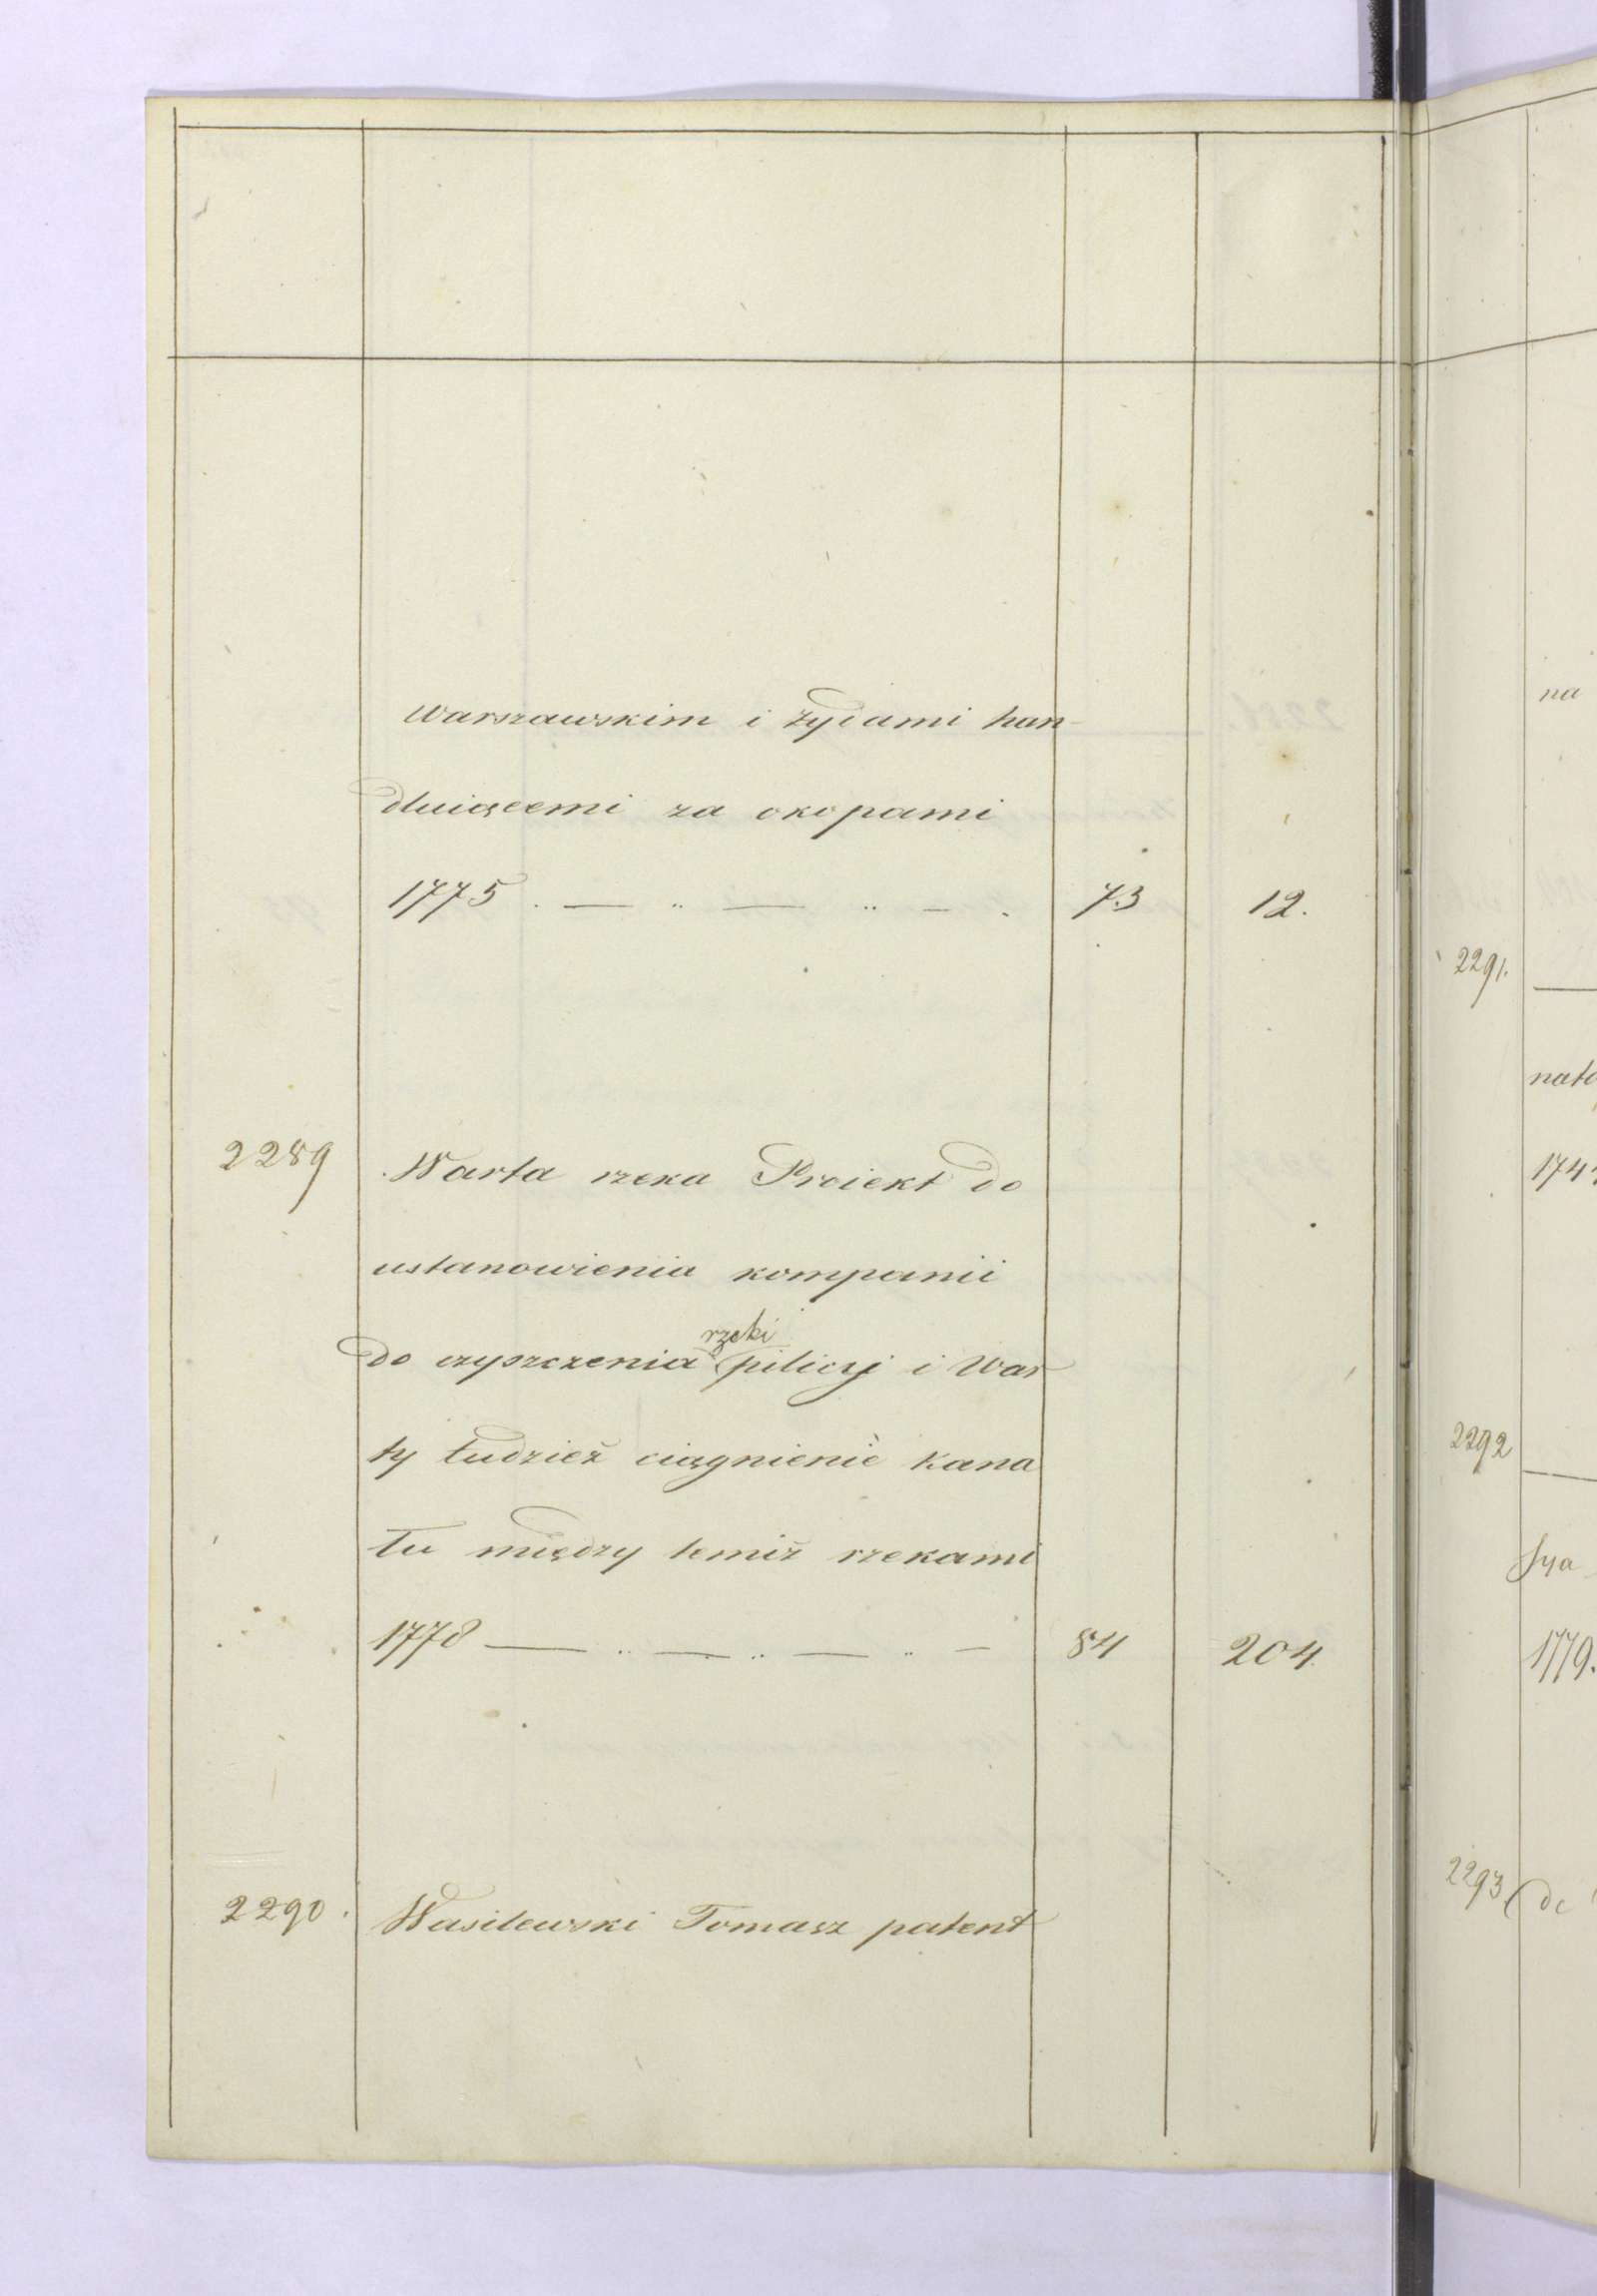 Warszawskim i żydami han-
dluiącemi za okopami
1775 . — .. — .. — . 73 12.
2289 Warta rzeka Proiekt do
ustanowienia kompanii
rzeki
do czyszczenia pilicy i War
ty tudzież ciągnienie kana
łu między temiż rzekami
1778 — .. — .. — .. — 84 204
2290. Wasilewski Tomasz patent
na
2291.
nato
174
2292
Sya
1779.
2293 do